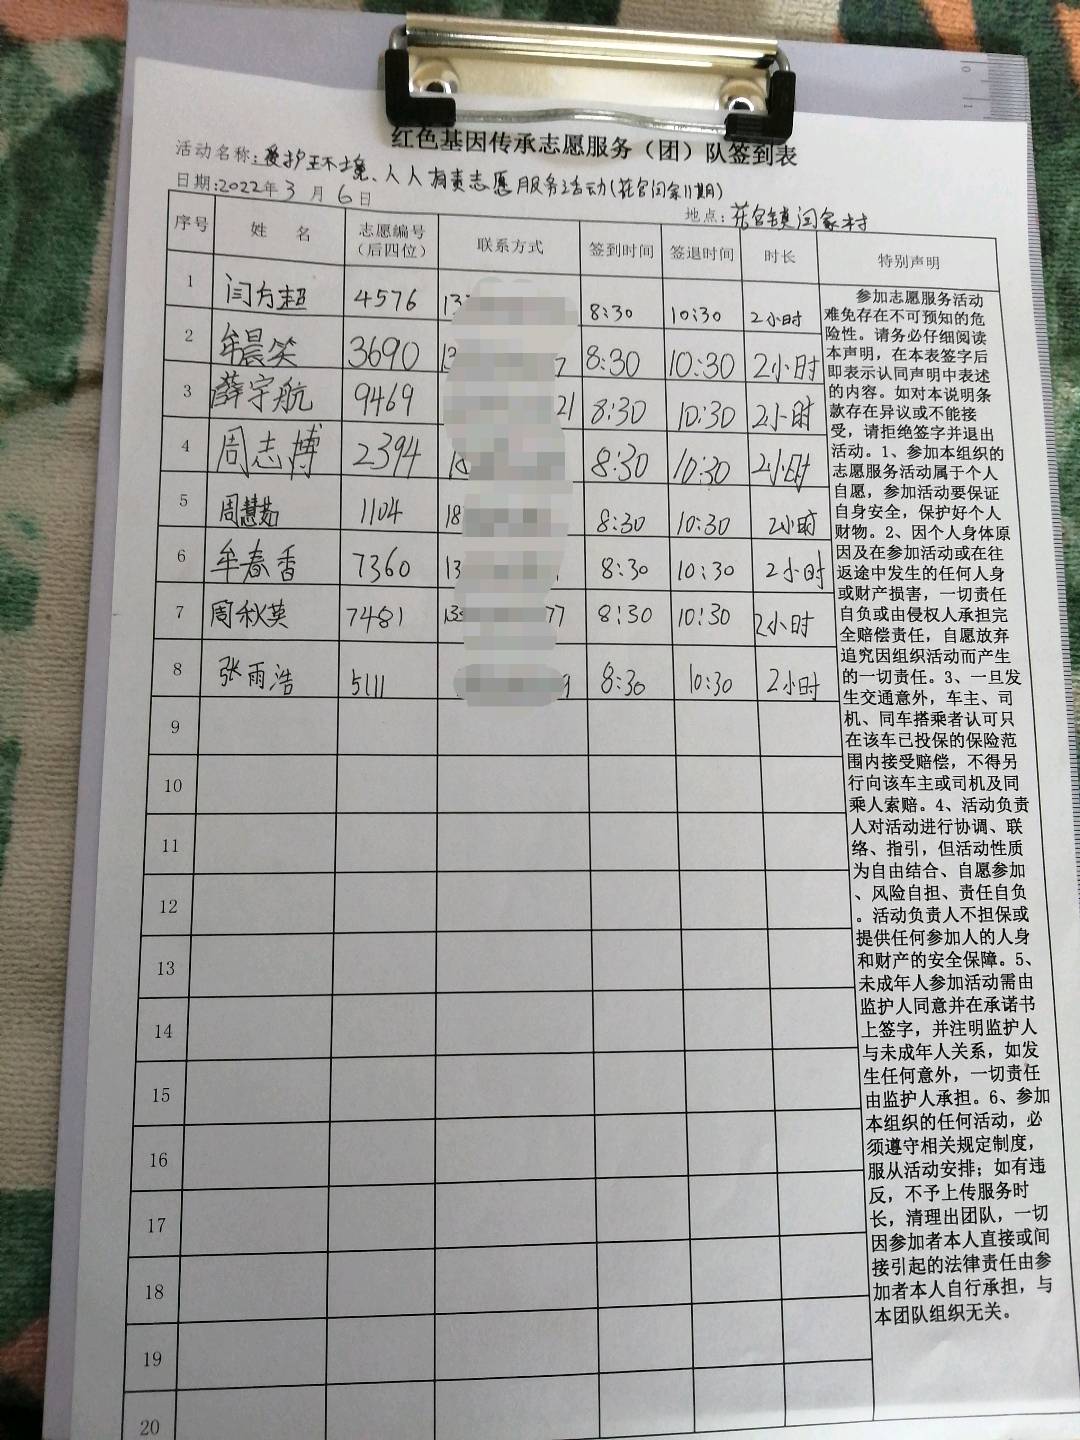 红色基因传承志愿服务（团）队签到表
活动名称：爱护环境、人人有责志愿服务活动（花官闫家11期）
日期：2022年3月6日
地点：花官镇闫家村
序号 姓名 志愿编号（后四位） 联系方式 签到时间 签退时间 时长 特别声明
1 闫方超 4576 13 8:30 10:30 2小时
2 牟晨笑 3690 13 7 8:30 10:30 2小时
3 薛宇航 9469 21 8:30 10:30 2小时
4 周志博 2394 18 8:30 10:30 2小时
5 周慧茹 1104 18 8:30 10:30 2小时
6 牟春香 7360 13 8:30 10:30 2小时
7 周秋英 7481 13 77 8:30 10:30 2小时
8 张雨浩 5111 9 8:30 10:30 2小时
9
10
11
12
13
14
15
16
17
18
19
20
参加志愿服务活动
难免存在不可预知的危
险性。请务必仔细阅读
本声明，在本表签字后
即表示认同声明中表述
的内容。如对本说明条
款存在异议或不能接
受，请拒绝签字并退出
活动。1、参加本组织的
志愿服务活动属于个人
自愿，参加活动要保证
自身安全，保护好个人
财物。2、因个人身体原
因及在参加活动或在往
返途中发生的任何人身
或财产损害，一切责任
自负或由侵权人承担完
全赔偿责任，自愿放弃
追究因组织活动而产生
的一切责任。3、一旦发
生交通意外，车主、司
机、同车搭乘者认可只
在该车已投保的保险范
围内接受赔偿，不得另
行向该车主或司机及同
乘人索赔。4、活动负责
人对活动进行协调、联
络、指引，但活动性质
为自由结合、自愿参加
、风险自担、责任自负
。活动负责人不担保或
提供任何参加人的人身
和财产的安全保障。5、
未成年人参加活动需由
监护人同意并在承诺书
上签字，并注明监护人
与未成年人关系，如发
生任何意外，一切责任
由监护人承担。6、参加
本组织的任何活动，必
须遵守相关规定制度，
服从活动安排；如有违
反，不予上传服务时
长，清理出团队，一切
因参加者本人直接或间
接引起的法律责任由参
加者本人自行承担，与
本团队组织无关。